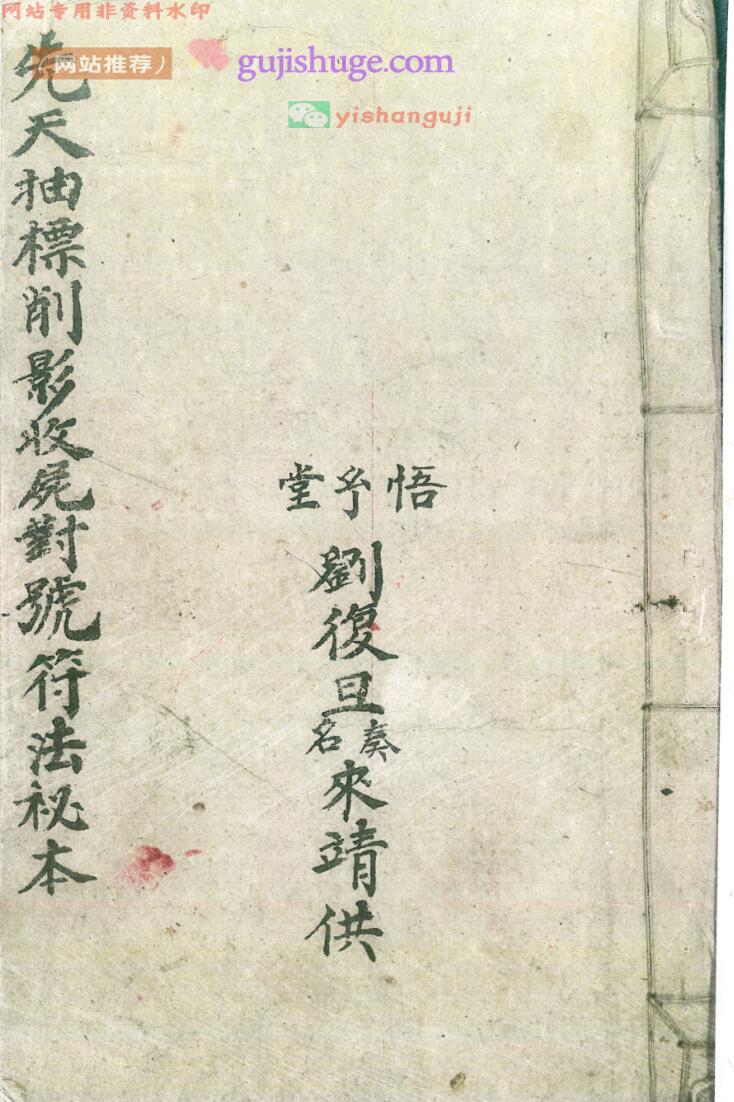 网站专用非资料水印
先天抽標削影收屍對號符法祕本
(网站推荐)
gujishuge.com
yishanguji
悟 堂
劉復旦奏名來靖供